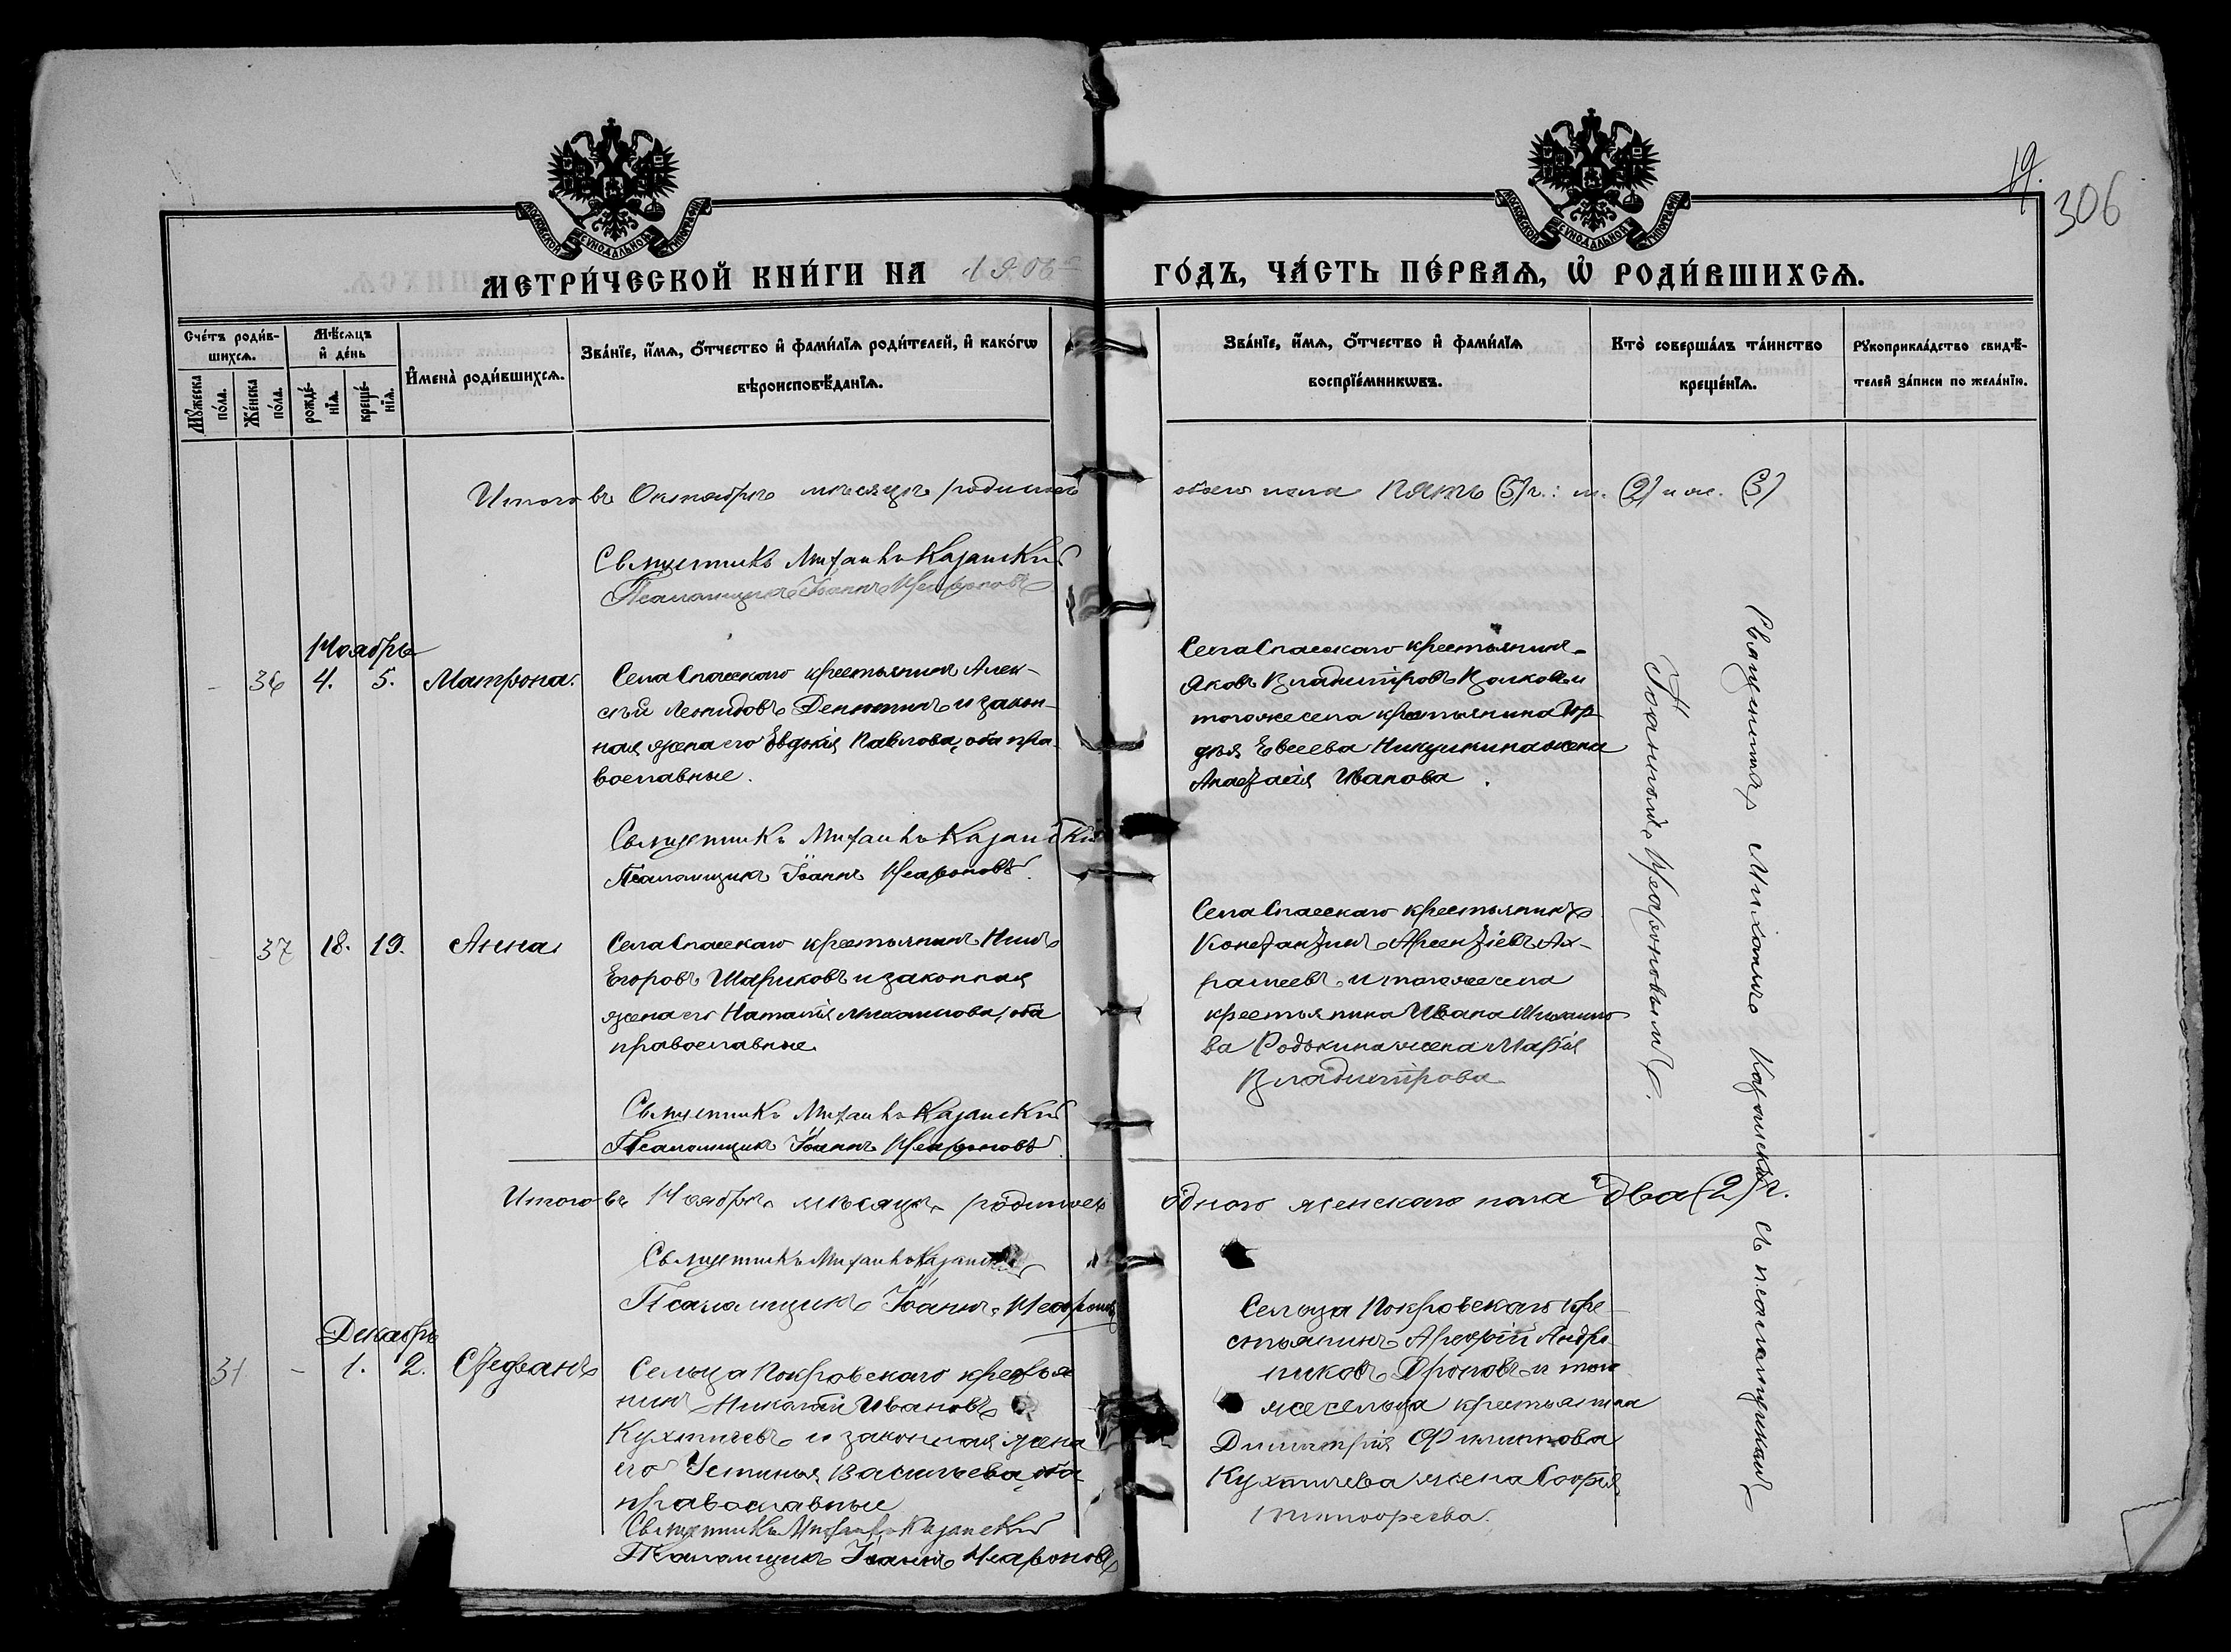 19.
306
МОСКОВСКОЙ СѴНОДАЛЬНОЙ ТИПОГРАФІИ
МОСКОВСКОЙ СѴНОДАЛЬНОЙ ТИПОГРАФІИ
МЕТРИ́ЧЕСКОЙ КНИ́ГИ НА 1906
ГО́ДЪ, ЧА́СТЬ ПЕ́РВАѦ, Ѡ҆ РОДИ́ВШИХСѦ.
Сче́тъ роди́в-
шихсѧ.
Мꙋ́жеска по́ла.
Же́нска по́ла.
Мѣ́сѧцъ и҆ де́нь
рожде́-
нїѧ.
креще́-
нїѧ.
И҆мена̀ роди́вшихсѧ.
Зва́нїе, и҆́мѧ, ѻ҆́тчество и҆ фами́лїѧ роди́телей, и҆ како́гѡ
вѣроисповѣ́данїѧ.
Зва́нїе, и҆́мѧ, ѻ҆́тчество и҆ фами́лїѧ
воспрїе́мникѡвъ.
Кто̀ соверша́лъ та́инство
креще́нїѧ.
Рꙋкоприкла́дство свидѣ́-
телей за́писи по жела́нїю.
Итого въ Октябрѣ мѣсяцѣ родилось
обоего пола пять (5) ч.: м. (2) и ж. (3)
Священникъ Михаилъ Казанскій
Псаломщикъ Іоаннъ Неароновъ
Ноябрь
- 36 4. 5. Матрона.
Села Спасскаго крестьянинъ Алек-
сѣй Леонидовъ Депютинъ и закон-
ная жена его Евдокія Павлова, оба пра-
вославные.
Села Спасскаго крестьянинъ
Яковъ Владиміровъ Волковъ и
того же села крестьянина
Евсеева Никушкина жена
Анастасія Иванова.
Священникъ Михаилъ Казанскій
Псаломщикъ Іоаннъ Неароновъ.
- 37 18. 19. Анна
Села Спасскаго крестьянинъ
Егоровъ Шариковъ и законная
жена его Наталія Михаилова, оба
православные
Села Спасскаго крестьянинъ
Константинъ Арсентіевъ Ах-
рамеевъ и того же села
крестьянина Ивана Михаило-
ва Родькина жена Марія
Владимірова
Священникъ Михаилъ Казанскій
Псаломщикъ Іоаннъ Неароновъ.
Итого въ Ноябрѣ мѣсяцѣ родилось
одного женскаго пола два (2) ч.
Священникъ Михаилъ Казанскій
Псаломщикъ Іоаннъ Неароновъ
Декабрь
31 - 1. 2. Стефанъ
Сельца Покровскаго крестья-
нинъ Николай Ивановъ
Кухтичевъ и законная жена
его Устинья Васильева, оба
православные
Сельца Покровскаго кре-
стьянинъ Арефій Андро-
никовъ Дроновъ и того
же сельца крестьянина
Димитрія Филиппова
Кухтичева жена Софія
Священникъ Михаилъ Казанскій
Псаломщикъ Іоаннъ Неароновъ
Священникъ Михаилъ Казанскій съ псаломщикомъ
Іоанномъ Неароновымъ.